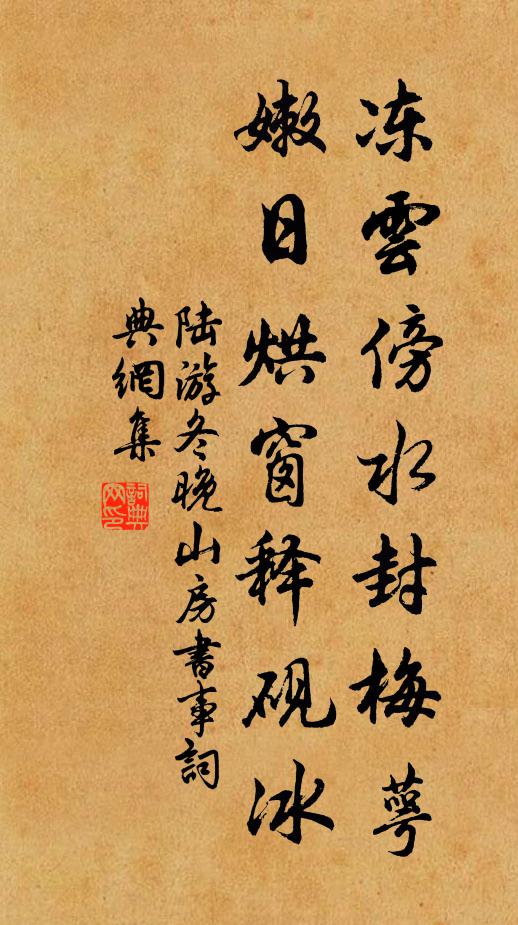 冻雲傍水封梅萼
嫩日烘窗释砚冰
陆游冬晚山房書事詞
典網集
詞典網印